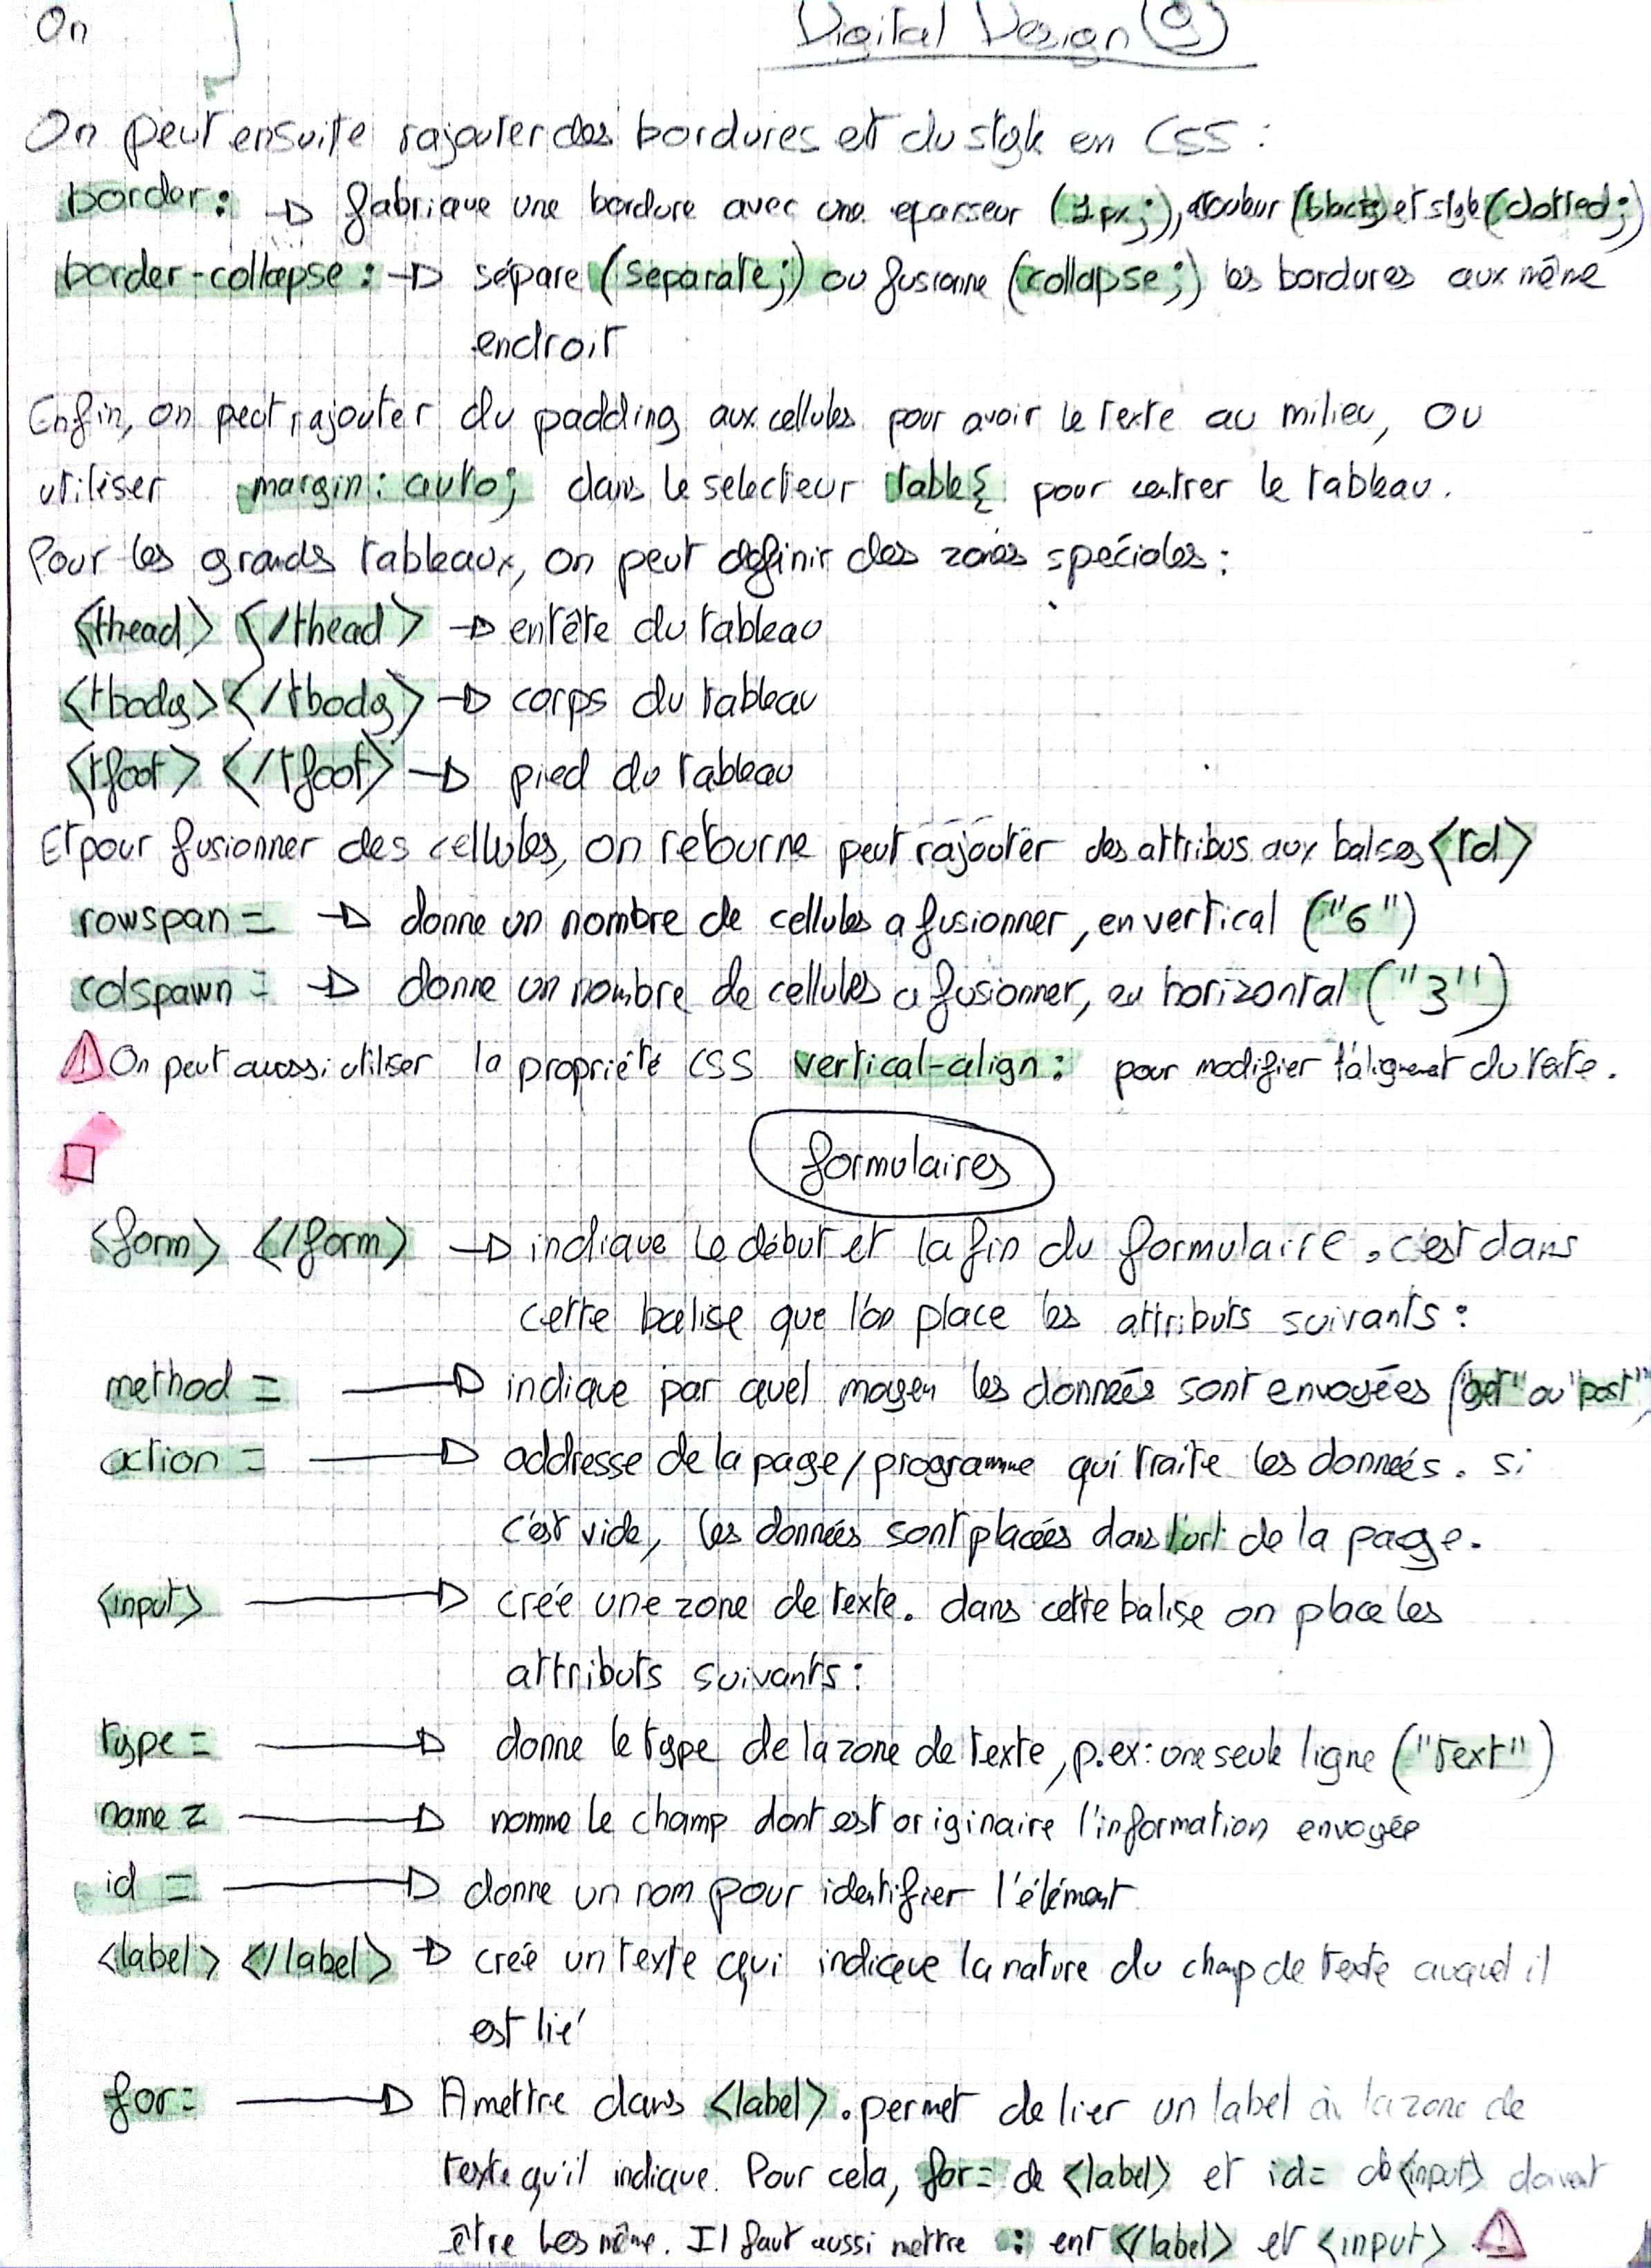 On
Digital Design
On peut ensuite rajouter des bordures et du style en CSS :
border: → fabrique une bordure avec une eparsseur (1px;), couleur (black) et style (dotted;)
border-collapse : → sépare (separate;) ou fusionne (collapse;) les bordures aux même
endroit
Enfin, on peut rajouter du padding aux cellules pour avoir le texte au milieu, ou
utiliser margin: auto; dans le selecteur table{ pour centrer le tableau.
Pour les grands tableaux, on peut définir des zones spéciales :
<thead> </thead> → entête du tableau
<tbody> </tbody> → corps du tableau
<tfoot> </tfoot> → pied du tableau
Et pour fusionner des cellules, on retourne peut rajouter des attribus aux balses <td>
rowspan= → donne un nombre de cellules a fusionner, en vertical ("6")
colspawn= → donne un nombre de cellules a fusionner, en horizontal ("3")
On peut aussi utiliser la propriété CSS vertical-align: pour modifier l'alignemet du texte.
formulaires
<form> </form> → indique le début et la fin du formulaire. c'est dans
cette balise que l'on place les attributs suivants :
method = → indique par quel moyen les données sont envoyées ("get" ou "post")
action = → addresse de la page/programme qui traite les données. si
c'est vide, les données sont placées dans l'url de la page.
<input> → crée une zone de texte. dans cette balise on place les
attributs suivants :
type = → donne le type de la zone de texte, p.ex: une seule ligne ("text")
name = → nomme le champ dont est originaire l'information envoyée
id = → donne un nom pour identifier l'élément
<label> </label> → crée un texte qui indique la nature du champ de texte auquel il
est lié
for= → A mettre dans <label>. permet de lier un label à la zone de
texte qu'il indique. Pour cela, for= de <label> et id= de <input> doivent
être les même. Il faut aussi mettre : ent </label> et <input>